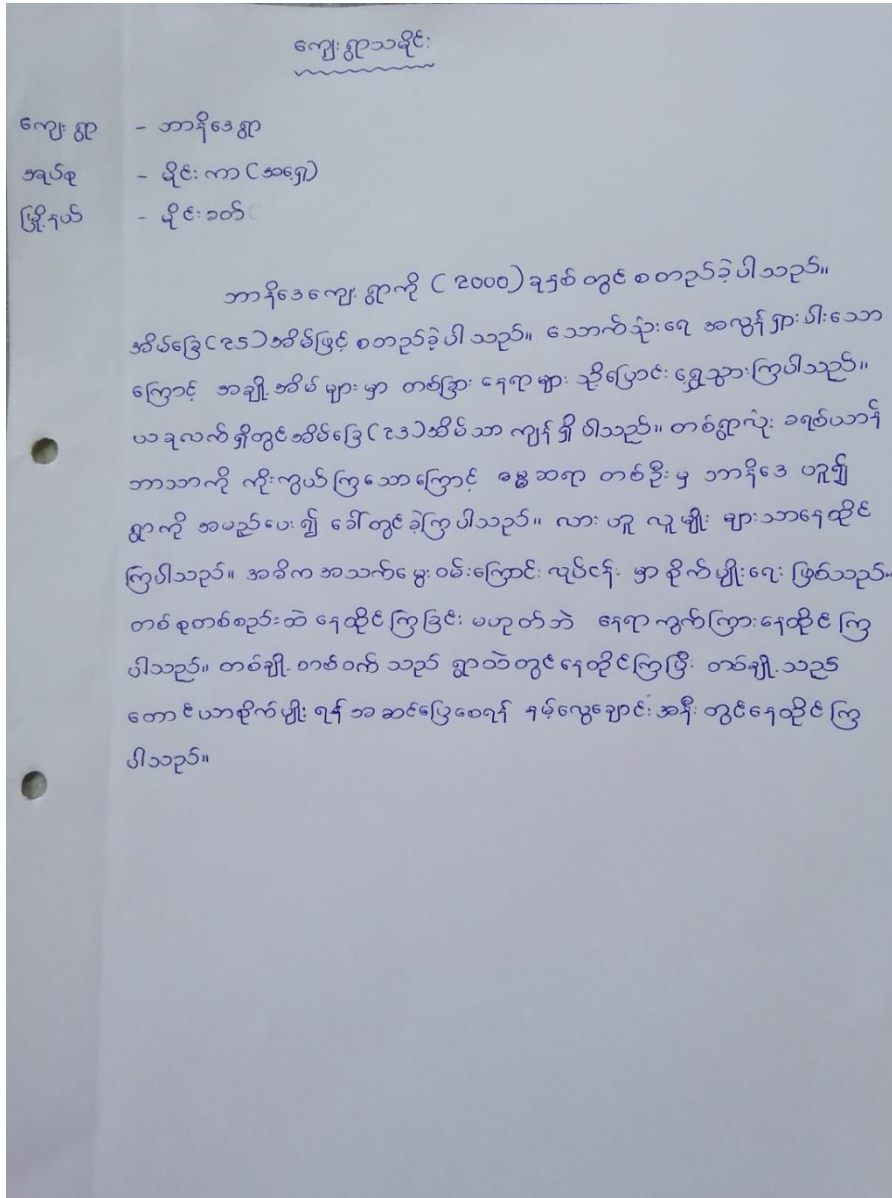 ကျေးရွာသမိုင်း
ကျေးရွာ - ဘာနိဒေရွာ
အုပ်စု - မိုင်းကာ (အရှေ့)
မြို့နယ် - မိုင်းခတ်
ဘာနိဒေကျေးရွာကို (2000) ခုနှစ်တွင် စတည်ခဲ့ပါသည်။
အိမ်ခြေ (25) အိမ်ဖြင့် စတည်ခဲ့ပါသည်။ သောက်သုံးရေ အလွန်ရှားပါးသော
ကြောင့် အချို့အိမ်များမှာ တစ်ခြားနေရာများ သို့ပြောင်းရွှေ့သွားကြပါသည်။
ယခုလက်ရှိတွင်အိမ်ခြေ (23) အိမ်သာ ကျန်ရှိပါသည်။ တစ်ရွာလုံး ခရစ်ယာန်
ဘာသာကို ကိုးကွယ်ကြသောကြောင့် ဓမ္မဆရာ တစ်ဦးမှ ဘာနိဒေ ဟူ၍
ရွာကို အမည်ပေး၍ ခေါ်တွင်ခဲ့ကြပါသည်။ လားဟူ လူမျိုးများသာနေထိုင်
ကြပါသည်။ အဓိက အသက်မွေးဝမ်းကြောင်း လုပ်ငန်းမှာ စိုက်ပျိုးရေး ဖြစ်သည်။
တစ်စုတစ်စည်းထဲ နေထိုင်ကြခြင်း မဟုတ်ဘဲ နေရာကွက်ကြားနေထိုင်ကြ
ပါသည်။ တစ်ချို့တစ်ဝက်သည် ရွာထဲတွင်နေထိုင်ကြပြီး တစ်ချို့သည်
တောင်ယာစိုက်ပျိုးရန် အဆင်ပြေစေရန် နမ့်လွေချောင်းအနီးတွင်နေထိုင်ကြ
ပါသည်။